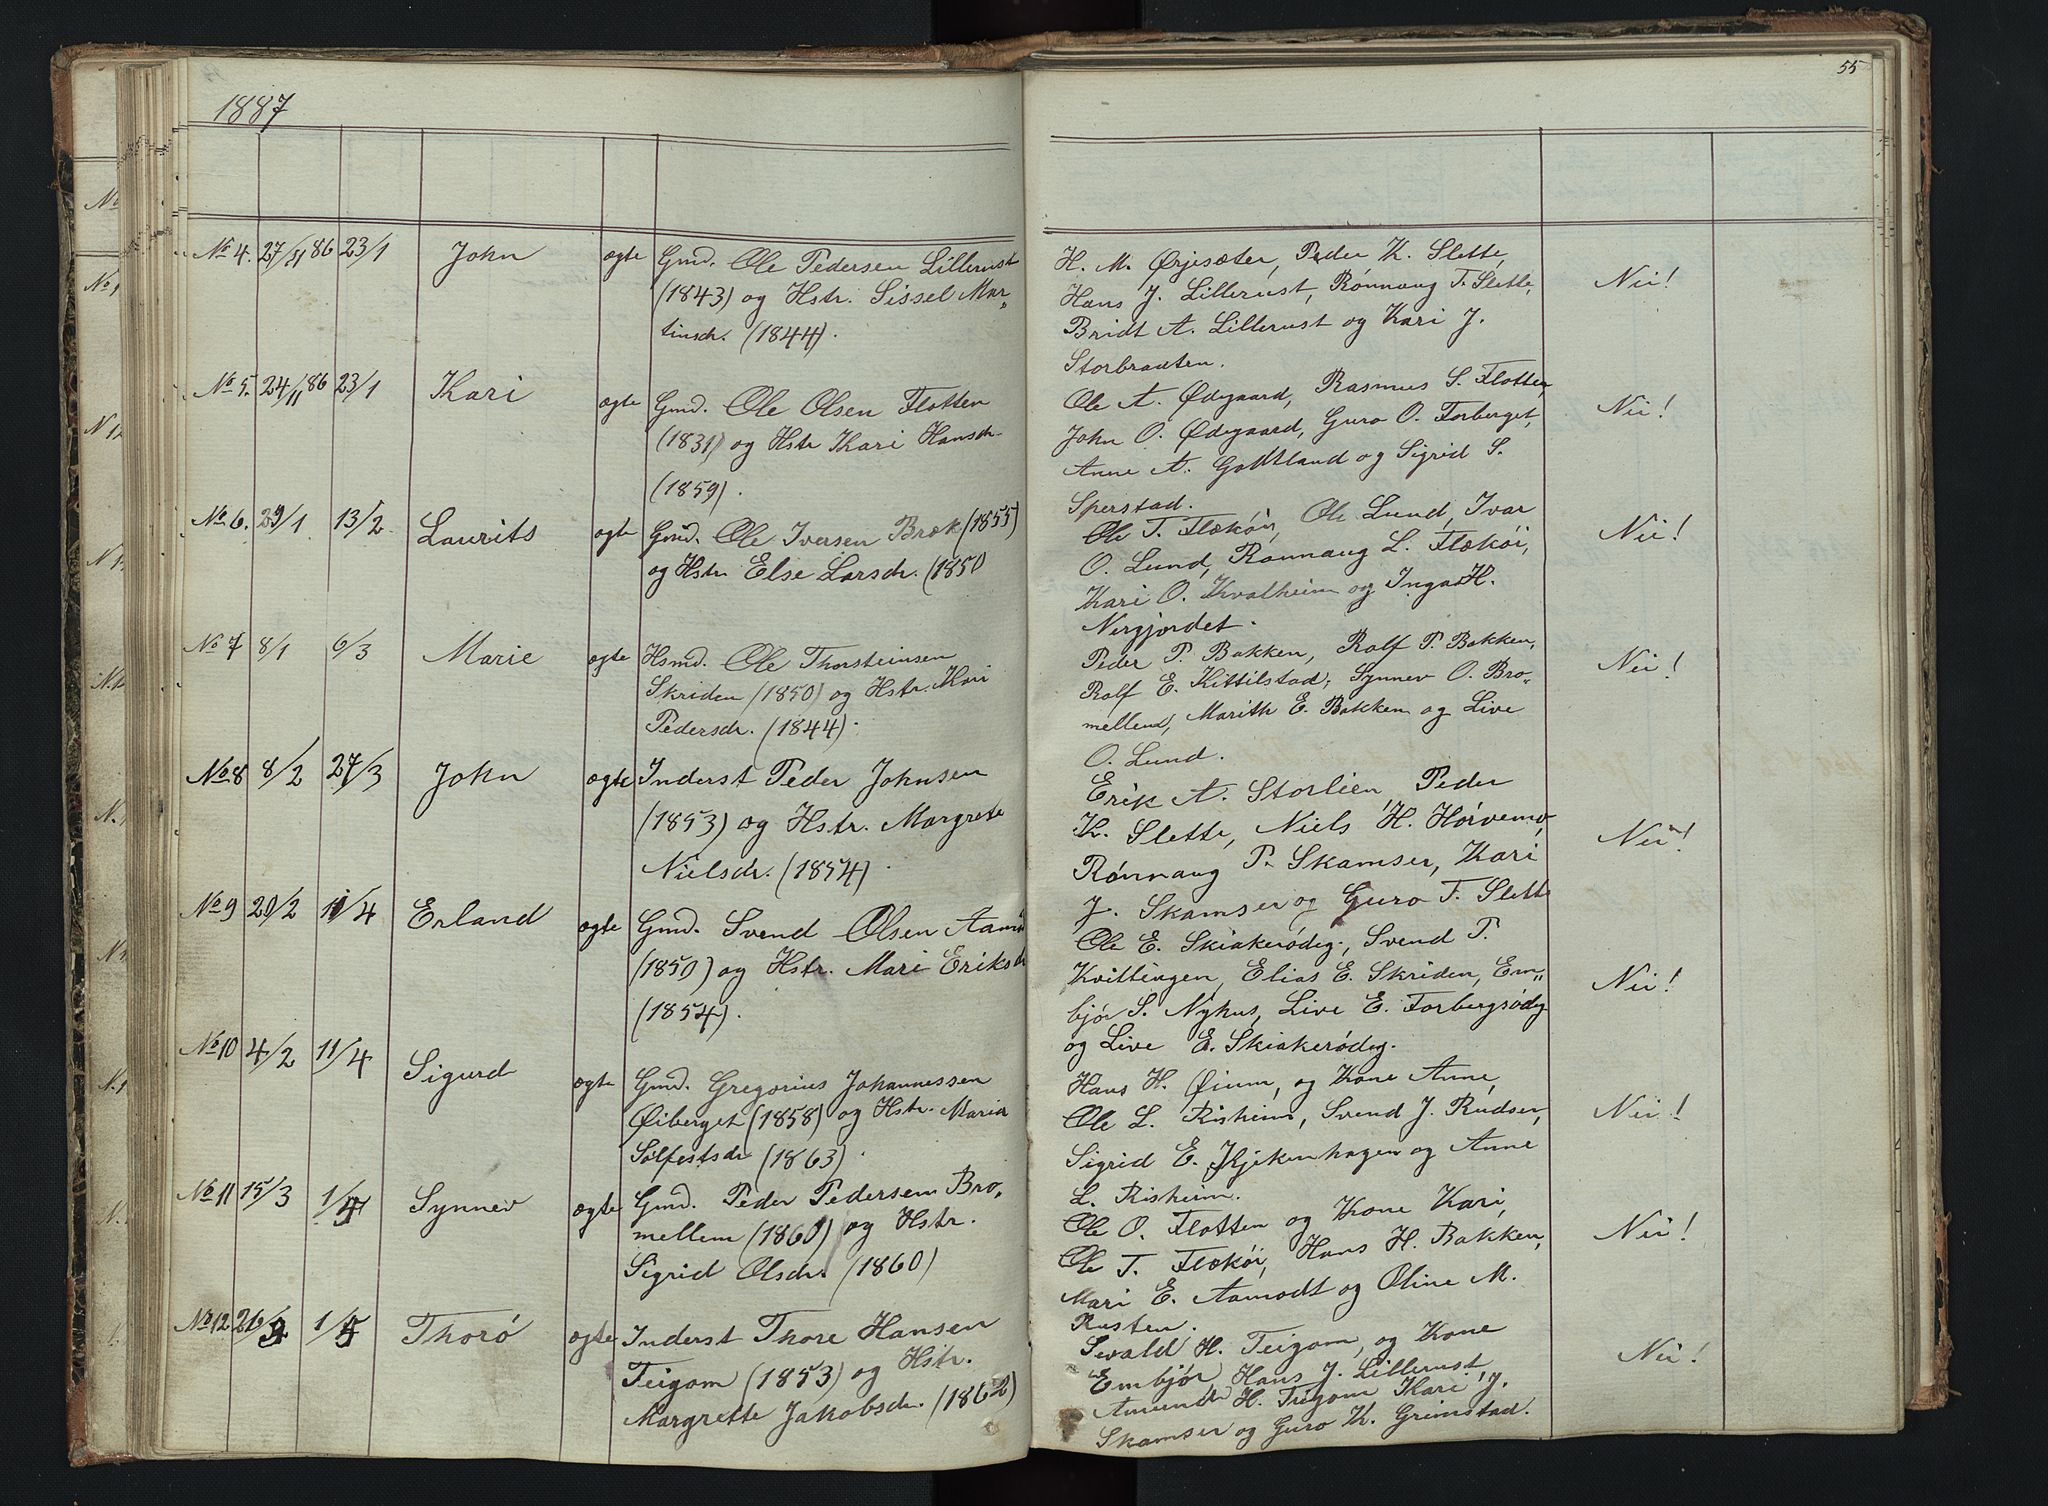 1887
No 4. 27/11 86 23/1 John ægte Gmd. Ole Pedersen Lillerust
(1843) og Hstr. Sissel Mar„
tinsdr. (1844).
No 5. 24/11 86 23/1 Kari ægte Gmd. Ole Olsen Flotten
(1831) og Hstr Kari Hansdr.
(1859).
No 6. 29/1 13/2 Laurits ægte Gmd. Ole Iversen Bræk (1855)
og Hstr Else Larsdr. (1850
No 7 8/1 6/3 Marie ægte Hsmd. Ole Thorsteinsen
Skriden (1850) og Hstr. Kari
Pedersdr. (1844).
No 8 8/2 27/3 John ægte Inderst Peder Johnsen
(1853) og Hstr. Margrete
Nielsdr. (1854).
No 9 20/2 11/4 Erland ægte Gmd. Svend Olsen Aamo
(1850) og Hstr. Mari Eriksdr
(1854).
No 10 4/2 11/4 Sigurd ægte Gmd. Gregorius Johannessen
Øiberget (1858) og Hstr. Maria
Sølfestsdr (1863).
No 11 15/3 1/5 Synnev ægte Gmd. Peder Pedersen Bro„
mellem (1860) og Hstr.
Sigrid Olsdr. (1860)
No 12 26/3 1/5 Thorø ægte Inderst Thore Hansen
Teigom (1853) og Hstr.
Margrette Jakobsdr. (1862)
55
H. M. Ørjesæter, Peder K. Slette,
Hans J. Lillerust, Rønnaug T. Slette,
Bridt A. Lillerust og Kari J.
Storbraaten.
Nei!
Ole A. Ødegaard, Rasmus S. Flotten,
John O. Ødegaard, Guro O. Forberget,
Anne A. Godtland og Sigrid S.
Sperstad.
Nei!
Ole T. Flækøi, Ole Lund, Ivar
O. Lund, Rønnaug L. Flækøi,
Kari O. Kvalheim og Inga H.
Nergjordet.
Nei!
Peder P. Bakken, Rolf P. Bakken,
Rolf E. Kittilstad, Synnev O. Bro„
mellem, Marith E. Bakken og Live
O. Lund.
Nei!
Erik A. Storlien, Peder
K. Slette, Niels H. Horvemo,
Rønnaug P. Skamser, Kari
J. Skamser og Guro T. Slette
Nei!
Ole E. Skiakerødeg., Svend P.
Kvittingen, Elias E. Skriden, Em„
bjør S. Nyhus, Live E. Forbergsødeg
og Live E. Skiakerødeg.
Nei!
Hans H. Øium, og Kone Anne,
Ole L. Risheim, Svend J. Rudser,
Sigrid E. Kjøkenhagen og Anne
L. Risheim.
Nei!
Ole O. Flotten og Kone Kari,
Ole T. Flækøi, Hans H. Bakken,
Mari E. Aamodt og Oline M.
Rusten.
Nei!
Sevald H. Teigom, og Kone
Embjør, Hans J. Lillerust,
Amund H. Teigom, Kari J.
Skamser og Guro K. Grimstad.
Nei!